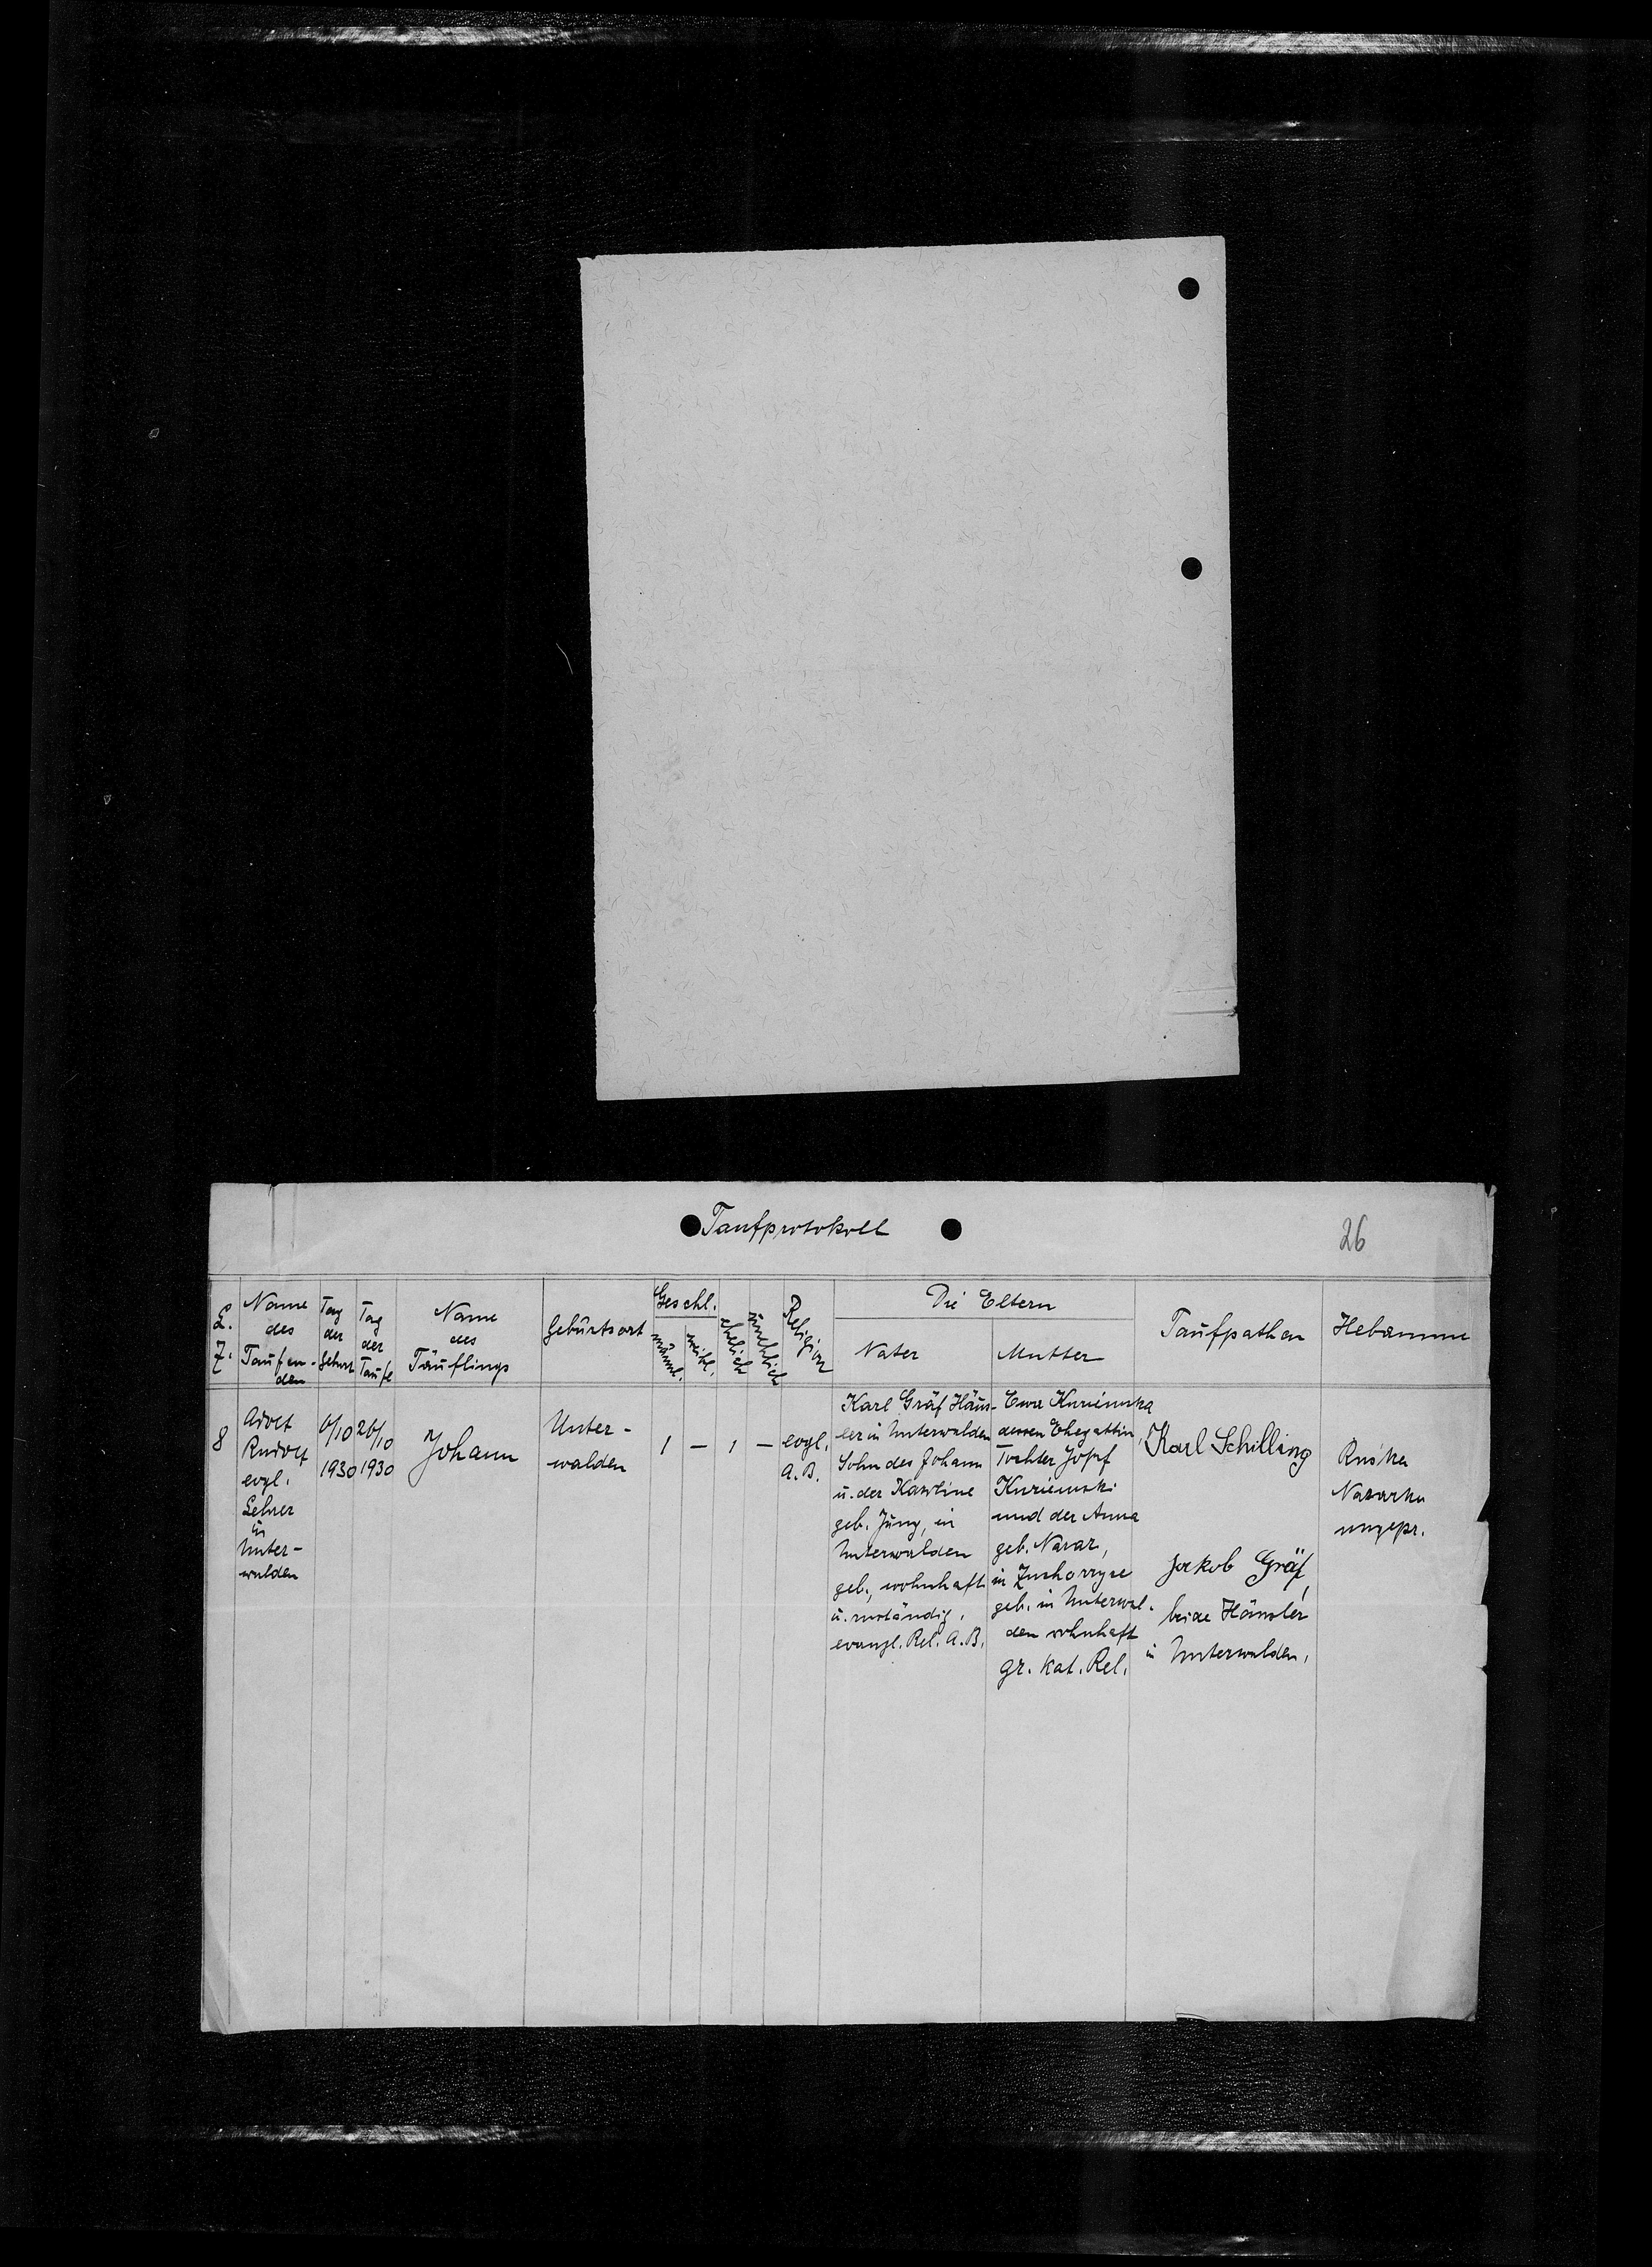 Taufprotokoll
26
L.
Z.
Name
des
Taufen-
den
Tag
der
Geburt
Tag
der
Taufe
Name
des
Täuflings
Geburtsort
Geschl.
männl.
weibl.
ehelich
unehlich
Religion
Die Eltern
Vater
Mutter
Taufpathen
Hebamme
8
Adolf
Rudolf
evgl.
Lehrer
in
Unter-
walden
6/10
1930
26/10
1930
Johann
Unter-
walden
1
—
1
—
evgl.
A.B.
Karl Gräf Häus-
ler in Unterwalden
Sohn des Johann
u. der Karoline
geb. Jung, in
Unterwalden
geb., wohnhaft
u. zuständig.
evangl. Rel. A.B.
Ewa
deren Ehegattin,
Tochter Josef
und der Anna
geb. Nazar,
in
geb. in Unterwal-
den wohnhaft
gr. kat. Rel.
Karl Schilling
Jakob Gräf,
beide Häusler
in Unterwalden.
Nazarko
ungepr.